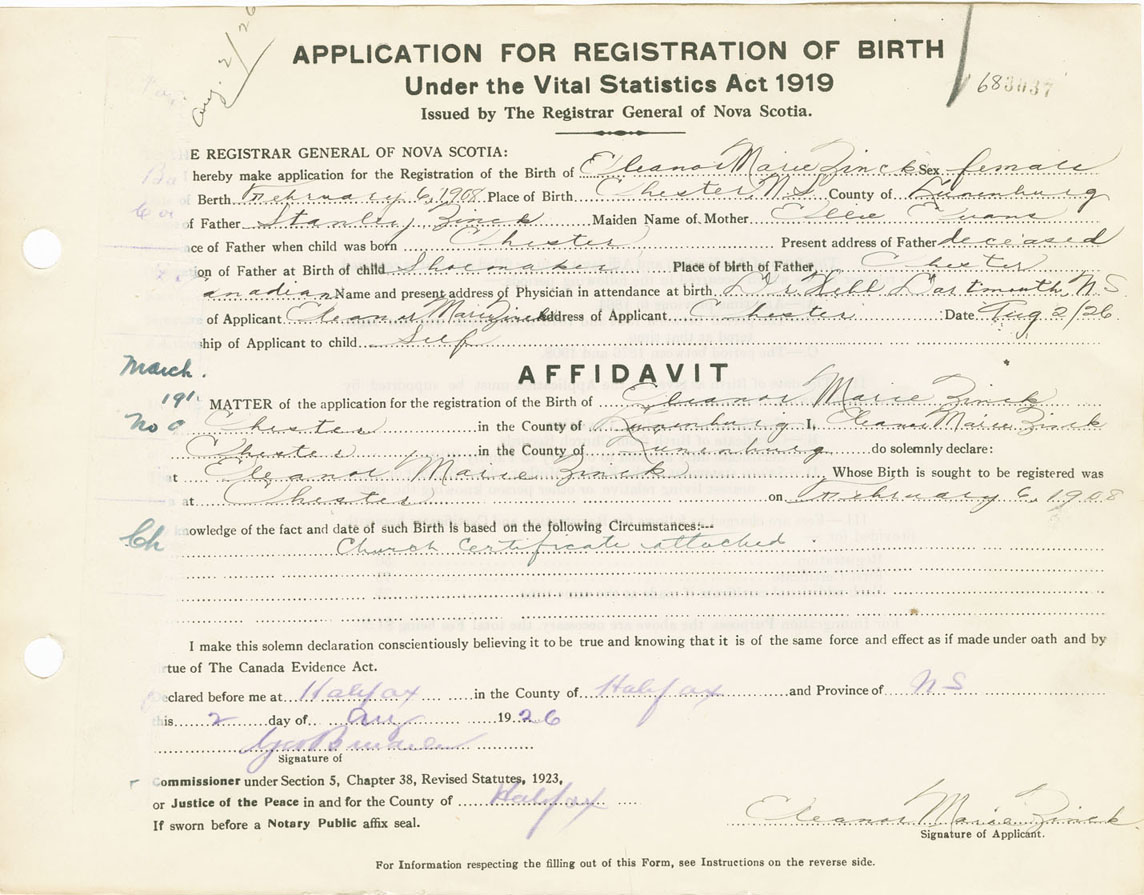 Aug. 2/26
APPLICATION FOR REGISTRATION OF BIRTH
Under the Vital Statistics Act 1919
683037
Issued by The Registrar General of Nova Scotia.
E REGISTRAR GENERAL OF NOVA SCOTIA:
hereby make application for the Registration of the Birth of Eleanor Marie Zinck Sex female
Berth. February 6, 1908 Place of Birth Chester, N.S. County of Lunenburg
of Father Stanley Zinck Maiden Name of Mother Ellie Evans
ce of Father when child was born Chester Present address of Father deceased
ion of Father at Birth of child Shoemaker Place of birth of Father Chester
anadian Name and present address of Physician in attendance at birth Dr Hebb Dartmouth, N.S.
of Applicant Eleanor Marie Zinck ddress of Applicant Chester Date Aug 2/26
ship of Applicant to child Self
March.
AFFIDAVIT
191
MATTER of the application for the registration of the Birth of Eleanor Marie Zinck
No
Chester in the County of Lunenburg I, Eleanor Marie Zinck
Chester in the County of Lunenburg do solemnly declare:
at Eleanor Marie Zinck Whose Birth is sought to be registered was
at Chester on February 6, 1908
Ch
knowledge of the fact and date of such Birth is based on the following Circumstances:--
Church Certificate attached
I make this solemn declaration conscientiously believing it to be true and knowing that it is of the same force and effect as if made under oath and by
rtue of The Canada Evidence Act.
Declared before me at Halifax in the County of Halifax and Province of NS
this 2 day of Au 1926
Signature of
Commissioner under Section 5, Chapter 38, Revised Statutes, 1923,
or Justice of the Peace in and for the County of Halifax
If sworn before a Notary Public affix seal.
Eleanor Marie Zinck
Signature of Applicant.
For Information respecting the filling out of this Form, see Instructions on the reverse side.